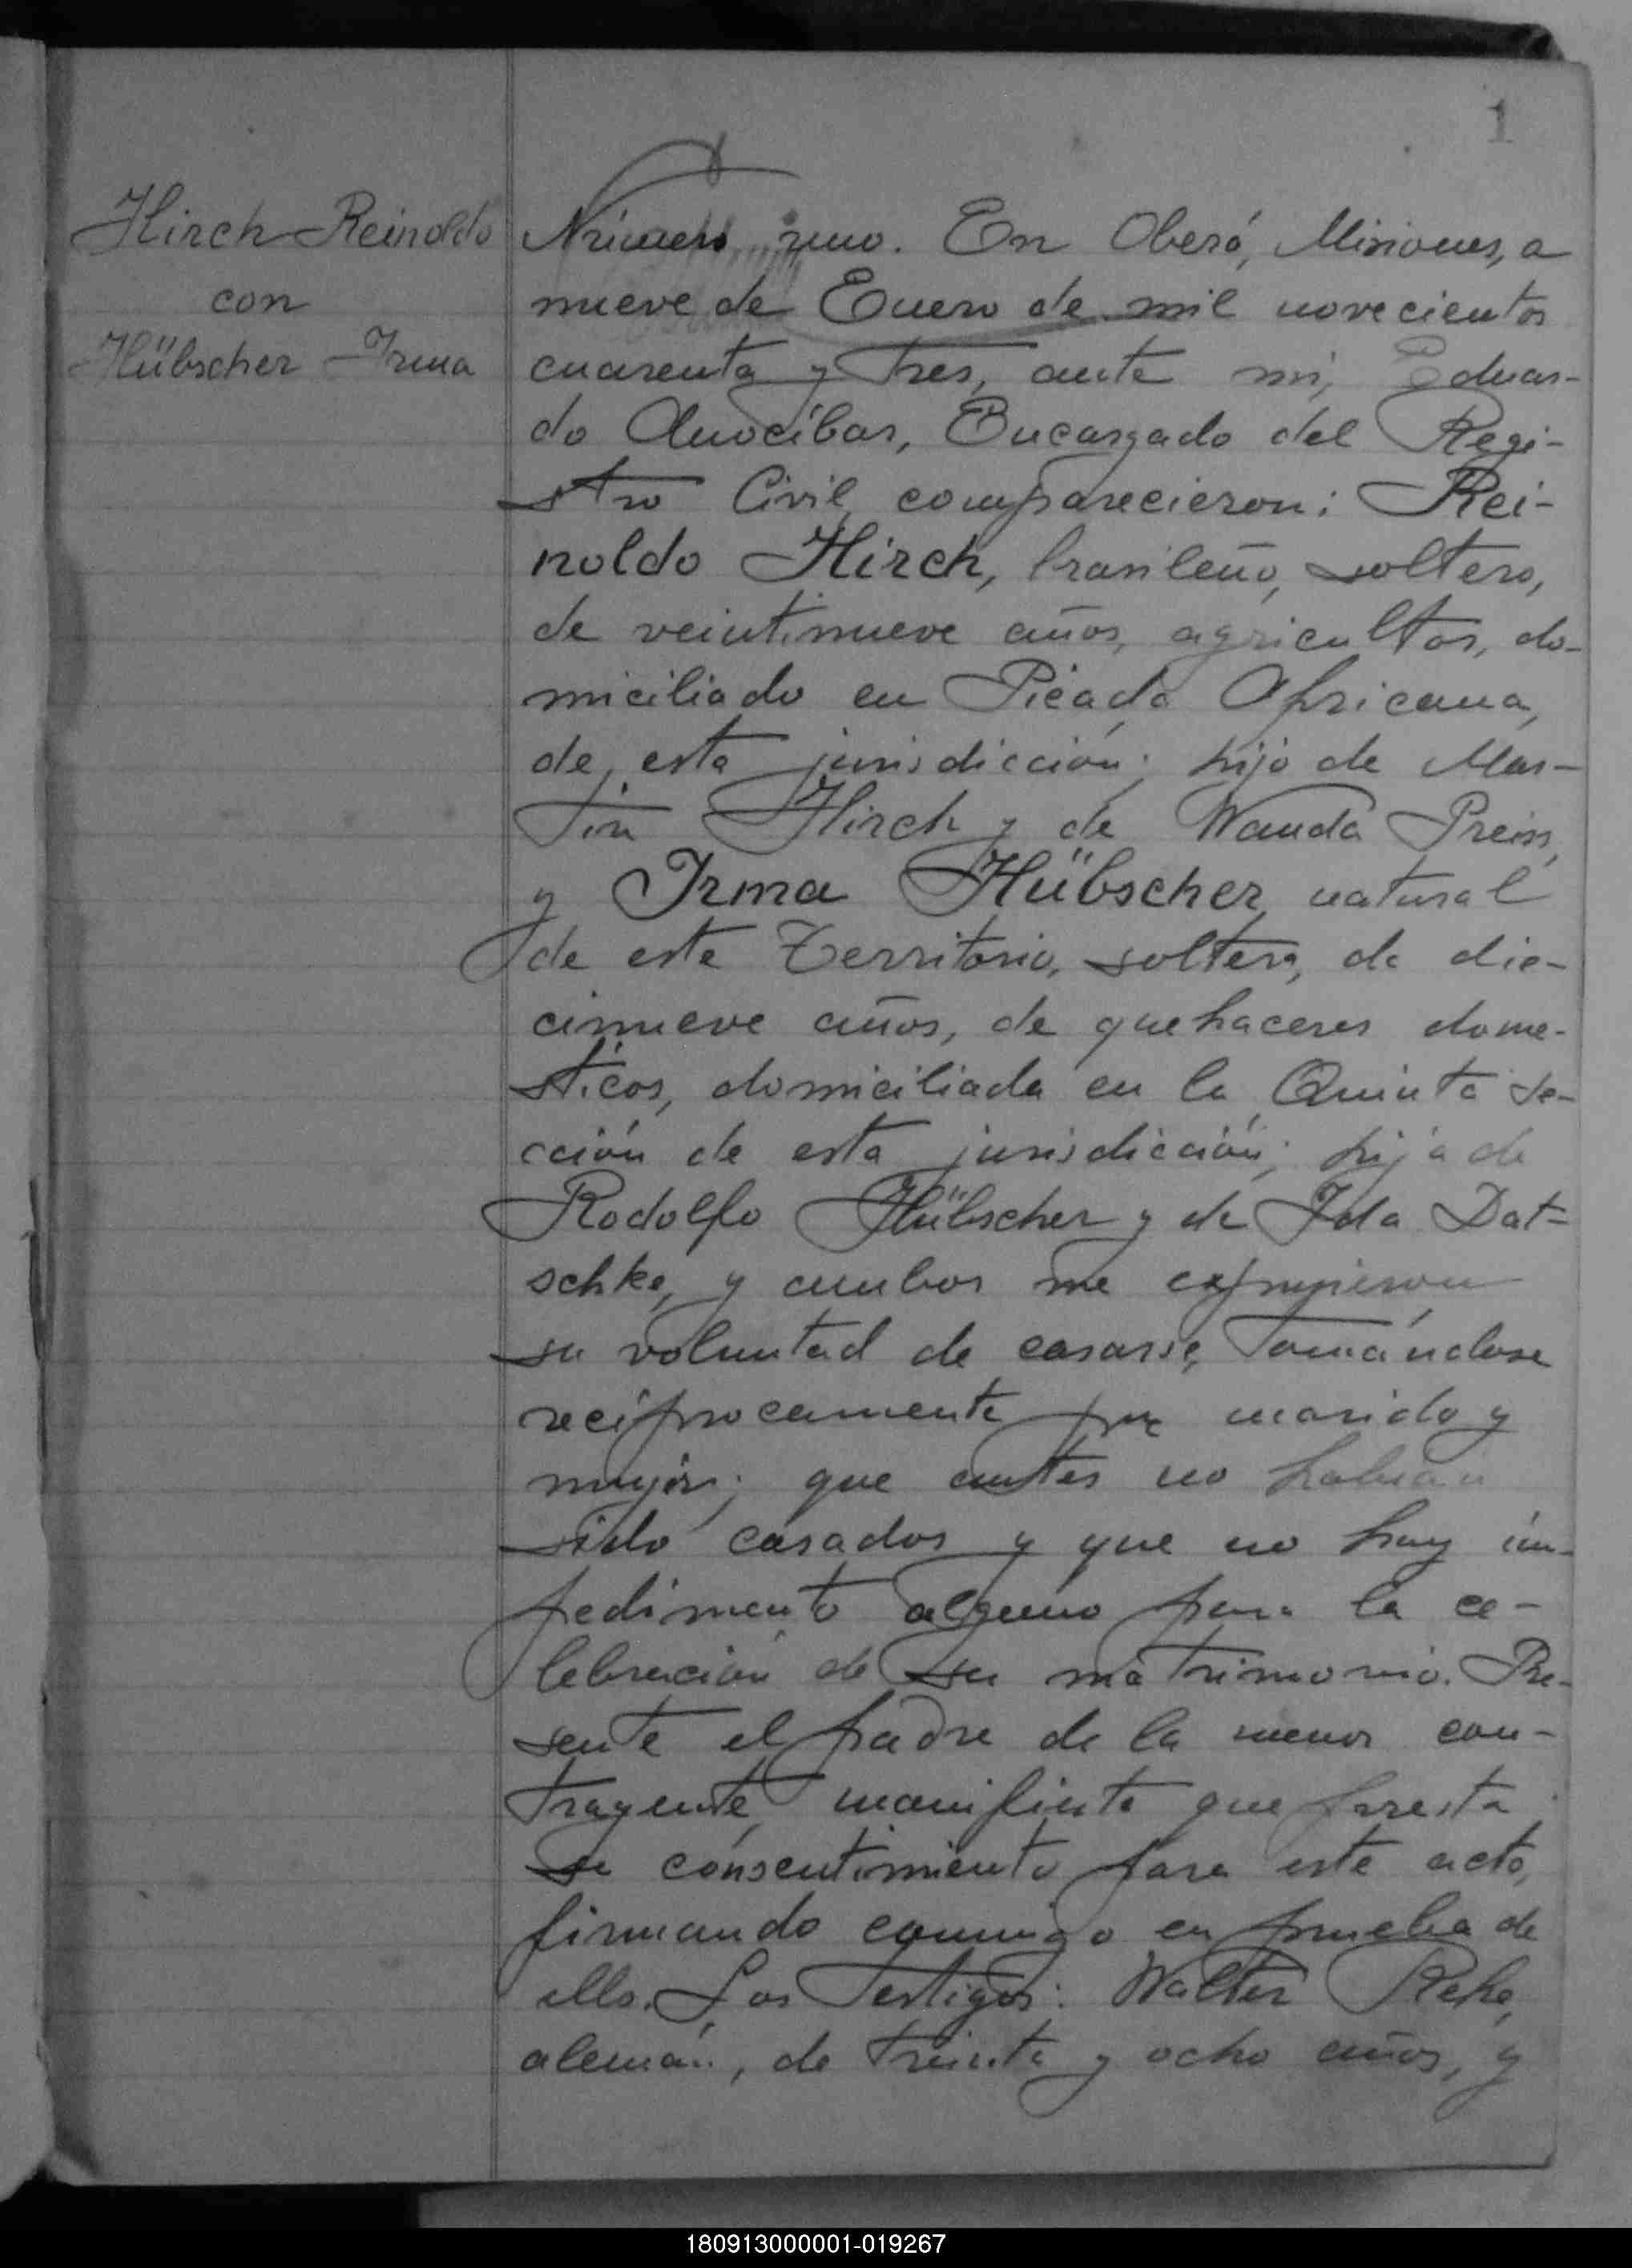 1
Hirch Reinoldo
con
Hübscher Irma
Número uno. En Oberá, Misiones, a
nueve de Enero de mil novecientos
cuarenta y tres, ante mi, Eduar-
do Anocíbar, Encargado del Regi-
stro Civil, comparecieron: Rei-
noldo Hirch, brasileño, soltero,
de veintinueve años, agricultor, do-
miciliado en Picada Africana,
de esta jurisdicción; hijo de Mar-
tín Hirch y de Wanda Preiss,
y Irma Hübscher, natural
de este Territorio, soltera, de die-
cinueve años, de quehaceres dome-
sticos, domiciliada en la Quinta Se-
cción de esta jurisdicción; hija de
Rodolfo Hübscher y de Ida Dat=
schke, y ambos me expusieron
su voluntad de casarse, tomándose
reciprocamente por marido y
mujer; que antes no habian
sido casados y que no hay im-
pedimento alguno para la ce-
lebración de su matrimonio. Pre-
sente el padre de la menor con-
trayente, manifiesta que presta
su consentimiento para este acto,
firmando conmigo en prueba de
ello. Los testigos: Walter
alemán, de treinta y ocho años, y
180913000001-019267